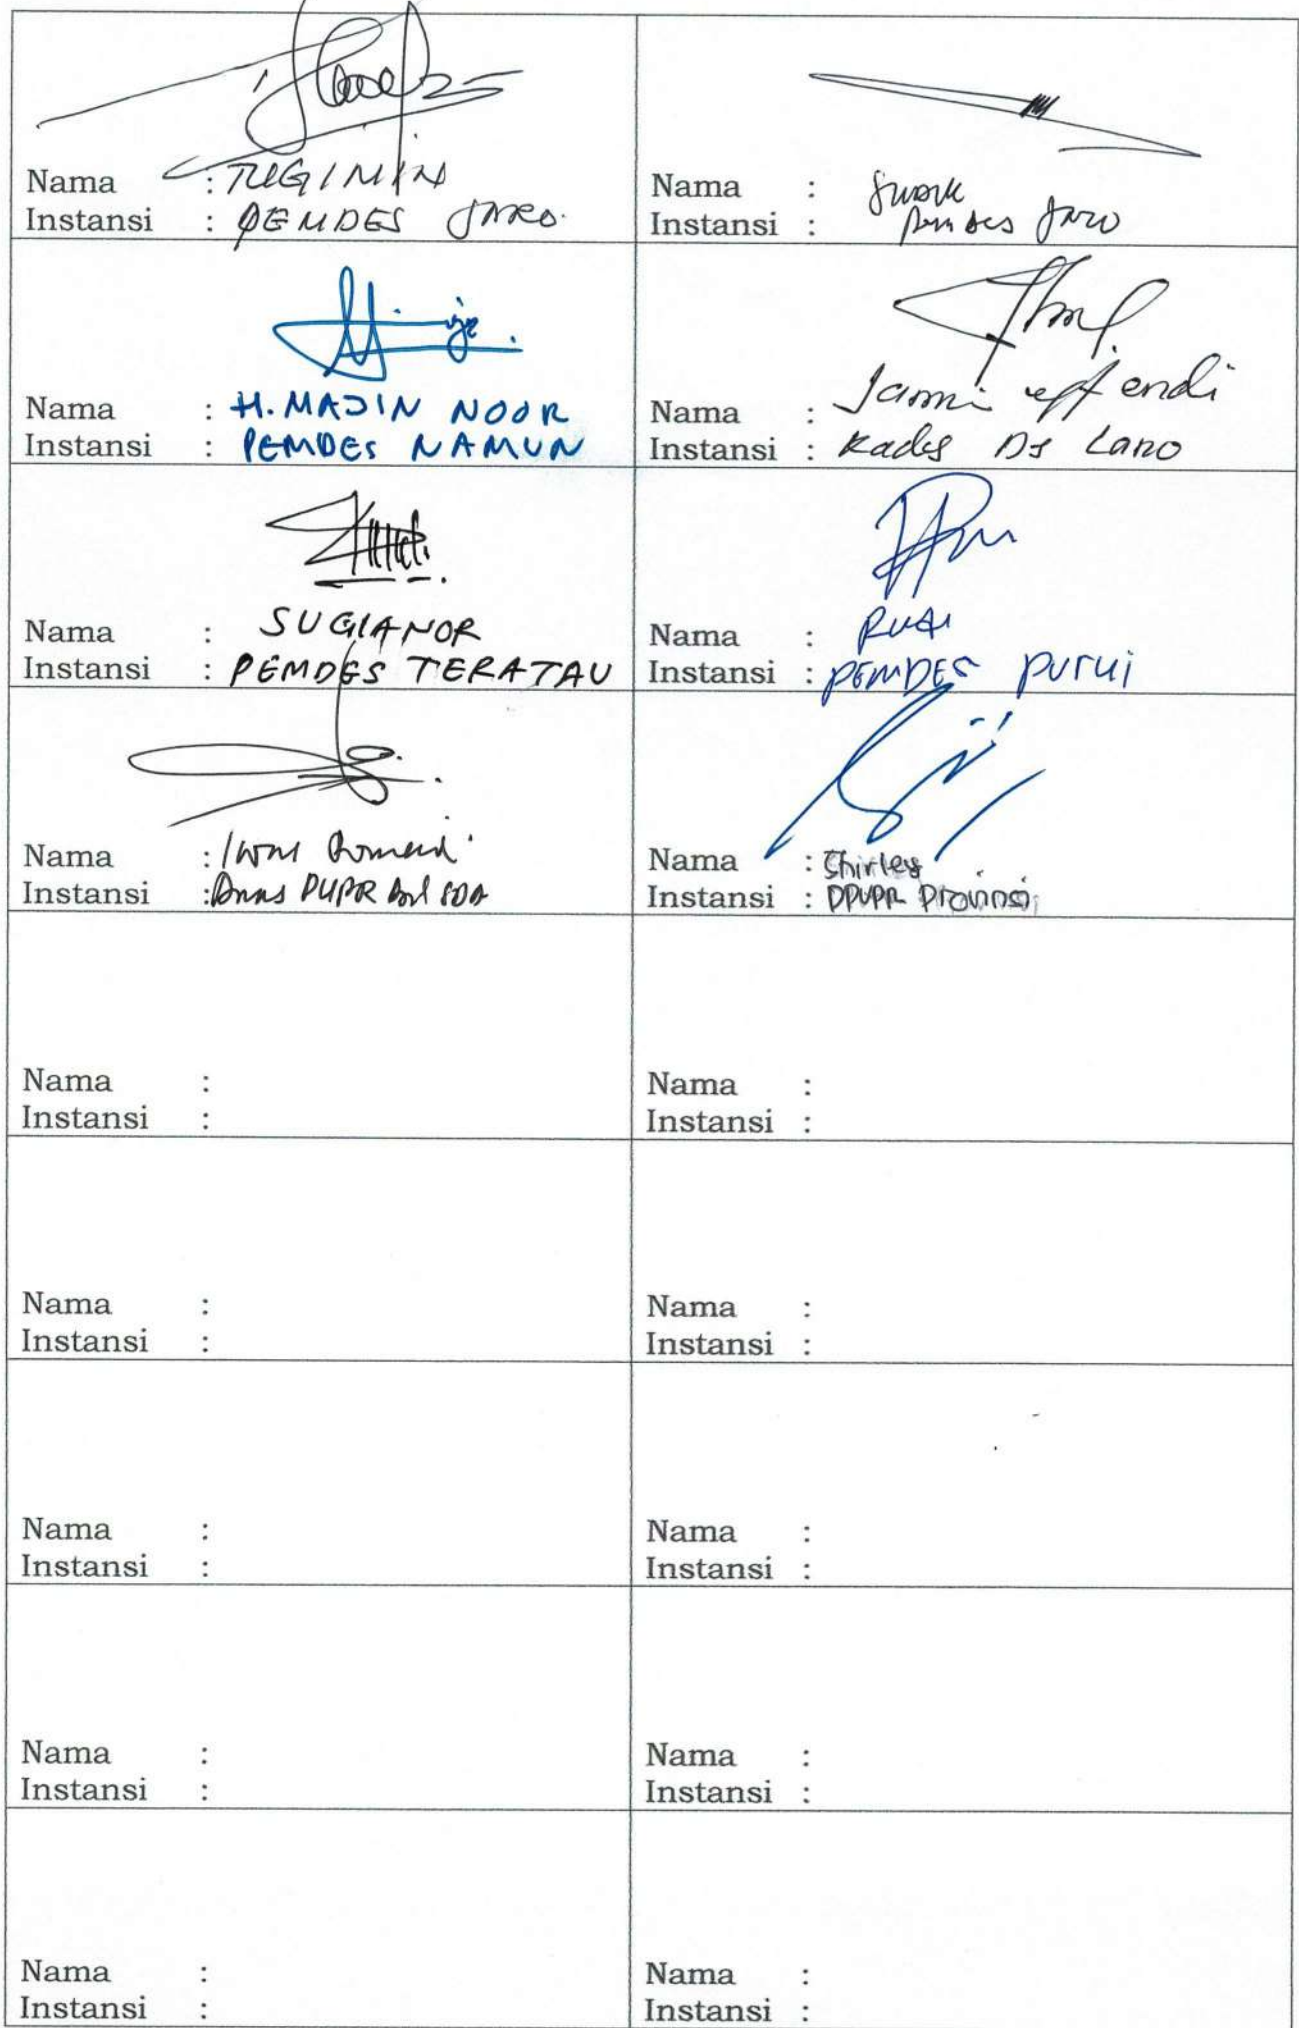 Nama : TUGIMIN
Instansi : PEMDES JARO.
Nama :
Instansi : Pemdes Jaro
Nama : H. MADIN NOOR
Instansi : PEMDES NAMUN
Nama : Jammi effendi
Instansi : Kades Ds Lano
Nama : SUGIANOR
Instansi : PEMDES TERATAU
Nama : RUDI
Instansi : PEMDES PURUI
Nama :
Instansi : Dinas PUPR
Nama : Shirley
Instansi : DPUPR Provinsi
Nama :
Instansi :
Nama :
Instansi :
Nama :
Instansi :
Nama :
Instansi :
Nama :
Instansi :
Nama :
Instansi :
Nama :
Instansi :
Nama :
Instansi :
Nama :
Instansi :
Nama :
Instansi :